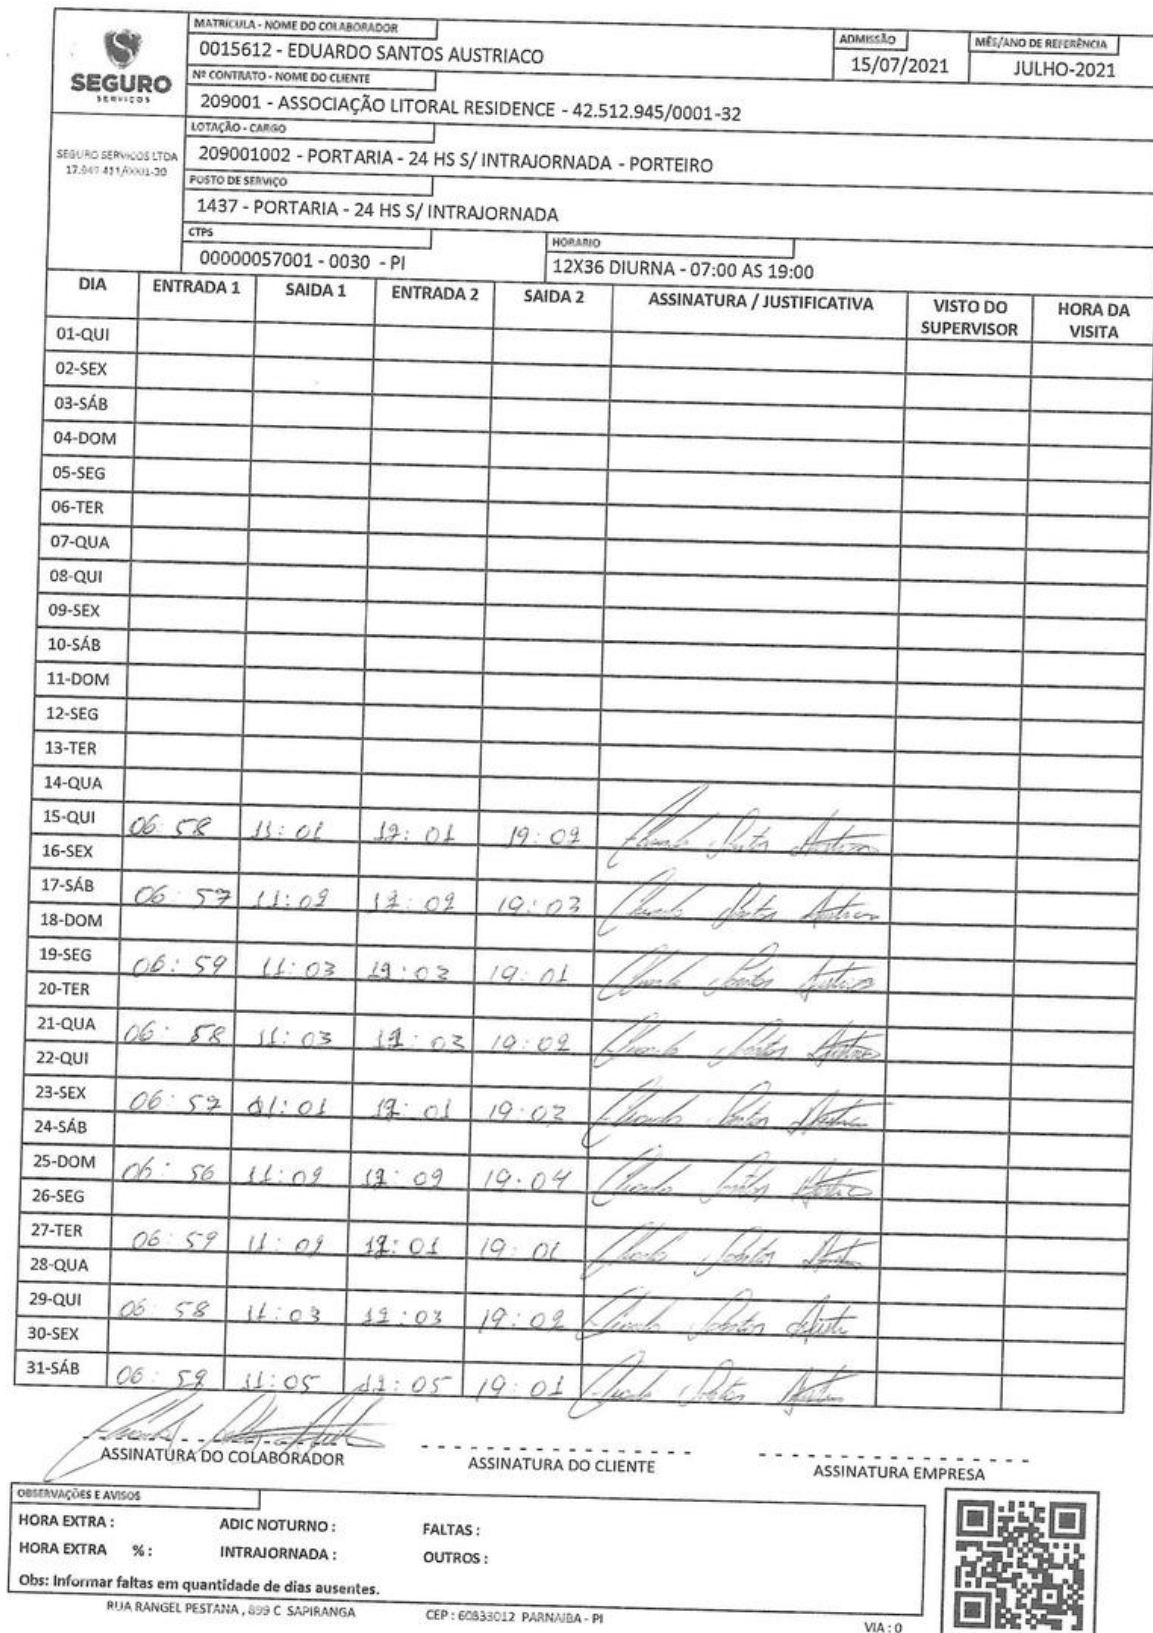 SEGURO
SERVIÇOS
SEGURO SERVICOS LTDA
MATRÍCULA - NOME DO COLABORADOR
0015612 - EDUARDO SANTOS AUSTRIACO
ADMISSÃO
15/07/2021
MÊS/ANO DE REFERÊNCIA
JULHO-2021
Nº CONTRATO - NOME DO CLIENTE
209001 - ASSOCIAÇÃO LITORAL RESIDENCE - 42.512.945/0001-32
LOTAÇÃO - CARGO
209001002 - PORTARIA - 24 HS S/ INTRAJORNADA - PORTEIRO
POSTO DE SERVIÇO
1437 - PORTARIA - 24 HS S/ INTRAJORNADA
CTPS
00000057001 - 0030 - PI
HORARIO
12X36 DIURNA - 07:00 AS 19:00
DIA ENTRADA 1 SAIDA 1 ENTRADA 2 SAIDA 2 ASSINATURA / JUSTIFICATIVA VISTO DO SUPERVISOR HORA DA VISITA
01-QUI
02-SEX
03-SÁB
04-DOM
05-SEG
06-TER
07-QUA
08-QUI
09-SEX
10-SÁB
11-DOM
12-SEG
13-TER
14-QUA
15-QUI 06:58 11:01 12:01 19:02
16-SEX
17-SÁB 06:57 11:02 12:02 19:03
18-DOM
19-SEG 06:59 11:03 12:03 19:01
20-TER
21-QUA 06:58 11:03 12:03 19:02
22-QUI
23-SEX 06:57 11:01 12:01 19:03
24-SÁB
25-DOM 06:56 11:02 12:02 19:04
26-SEG
27-TER 06:59 12:01 19:01
28-QUA
29-QUI 06:58 11:03 12:03 19:02
30-SEX
31-SÁB 11:05 12:05 19:01
ASSINATURA DO COLABORADOR
ASSINATURA DO CLIENTE
ASSINATURA EMPRESA
OBSERVAÇÕES E AVISOS
HORA EXTRA : ADIC NOTURNO : FALTAS :
HORA EXTRA % : INTRAJORNADA : OUTROS :
Obs: Informar faltas em quantidade de dias ausentes.
RUA RANGEL PESTANA , 899 C SAPIRANGA CEP : 60833012 PARNAIBA - PI
VIA : 0